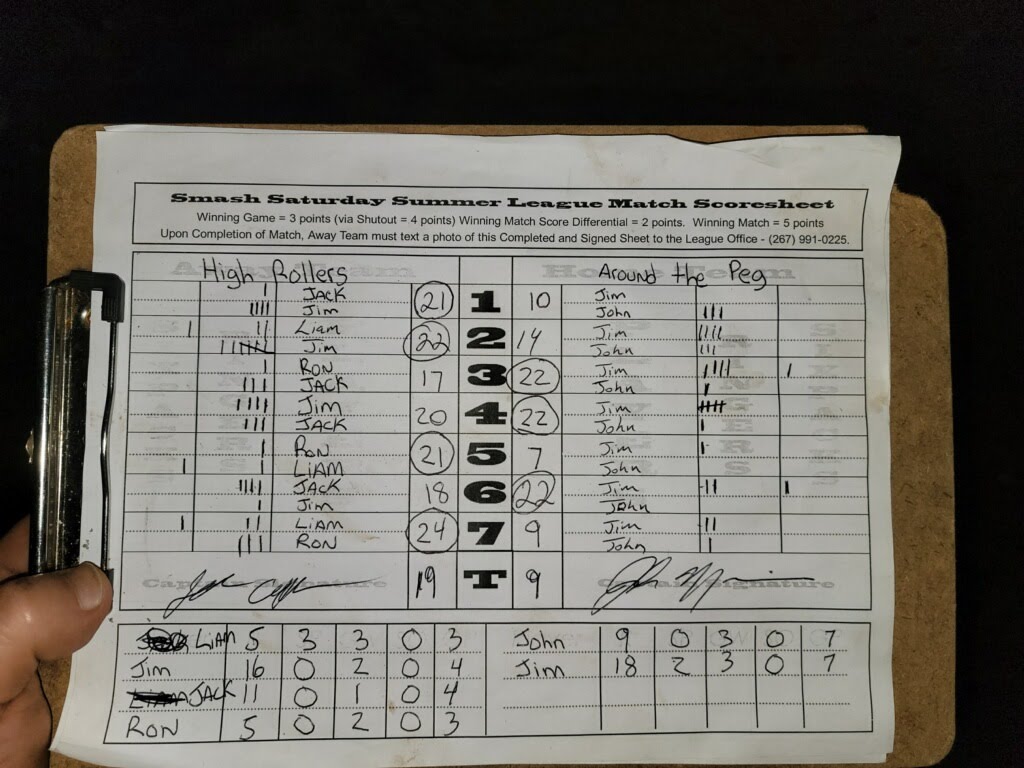 Smash Saturday Summer League Match Scoresheet
Winning Game = 3 points (via Shutout = 4 points) Winning Match Score Differential = 2 points. Winning Match = 5 points
Upon Completion of Match, Away Team must text a photo of this Completed and Signed Sheet to the League Office - (267) 991-0225.
High Rollers Around the Peg
JACK 21 1 10 Jim
Jim John
Liam 22 2 14 Jim
Jim John
RON 17 3 22 Jim
JACK John
Jim 20 4 22 Jim
JACK John
RON 21 5 7 Jim
LIAM John
JACK 18 6 22 Jim
Jim John
LIAM 24 7 9 Jim
RON John
19 T 9
LIAM 5 3 3 0 3 John 9 0 3 0 7
Jim 16 0 2 0 4 Jim 18 2 3 0 7
JACK 11 0 1 0 4
RON 5 0 2 0 3